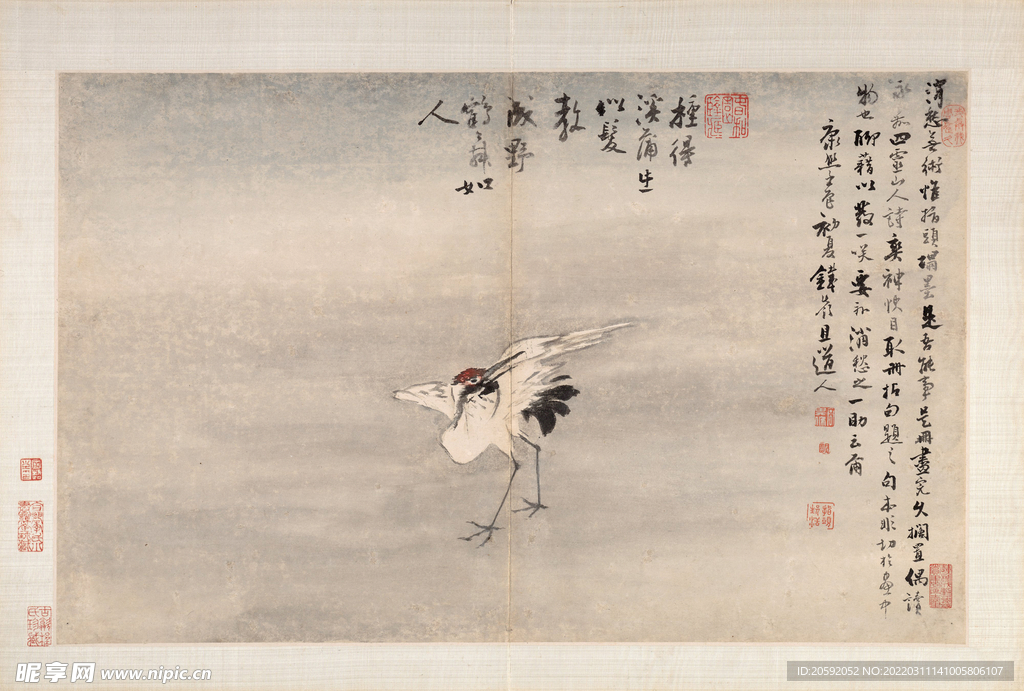 消愁無術惟指頭搨墨是吾能事是冊畫完久擱置偶讀
永嘉四靈山人詩爽神快目取冊拈句題之句本非切於畫中
物也聊藉以發一笑要亦消愁之一助云爾
康熙初夏鐵嶺且道人
種得
溪蒲生
似髮
教
成野
鶴舞如
人
昵享网 www.nipic.cn
ID:20592052 NO:20220311141005806107